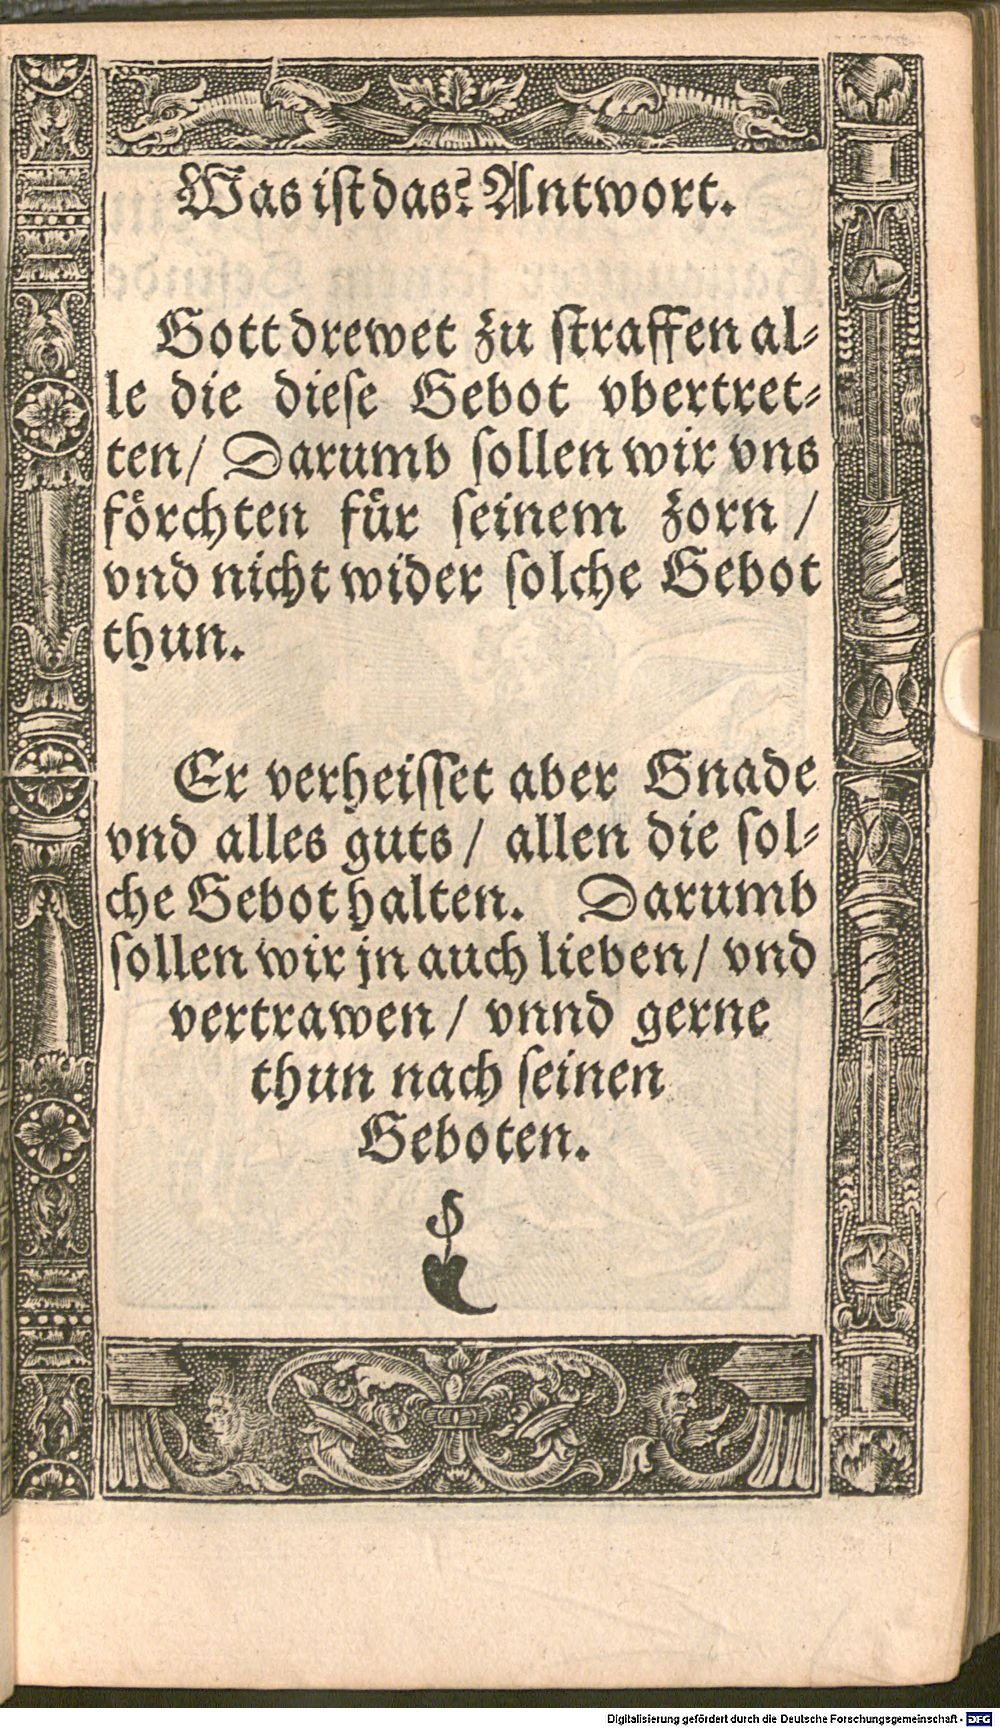 Was ist das? Antwort.
Gott drewet zu straffen al⸗
le die diese Gebot vbertret⸗
ten/ Darumb sollen wir vns
förchten für seinem zorn /
vnd nicht wider solche Gebot
thun.
Er verheisset aber Gnade
vnd alles guts / allen die sol⸗
che Gebot halten. Darumb
sollen wir jn auch lieben/ vnd
vertrawen / vnnd gerne
thun nach seinen
Geboten.
Digitalisierung gefördert durch die Deutsche Forschungsgemeinschaft - DFG